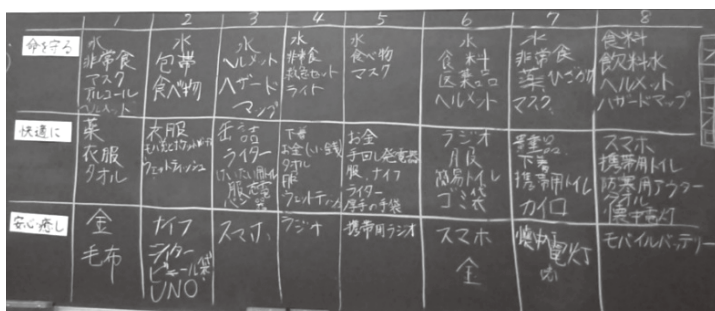 1 2 3 4 5 6 7 8
命を守る
水
非常食
マスク
アルコール
ヘルメット
水
包帯
食べ物
水
ヘルメット
ハザード
マップ
水
非常食
救急セット
ライト
水
食べ物
マスク
水
食料
医薬品
ヘルメット
水
非常食
薬
マスク
食料
飲料水
ヘルメット
ハザードマップ
快適に
薬
衣服
タオル
衣服
ウェットティッシュ
缶詰
ライター
けいたい用トイレ
下着
タオル
服
ウェットティッシュ
お金
手回し発電器
服、ナイフ
ライター
厚手の手袋
ラジオ
簡易トイレ
ゴミ袋
下着
携帯用トイレ
カイロ
スマホ
携帯用トイレ
防寒用アウター
タオル
懐中電灯
安心・癒し
金
毛布
ナイフ
ライター
ビニール袋
UNO
スマホ
ラジオ
携帯用ラジオ
スマホ
金
懐中電灯
モバイルバッテリー